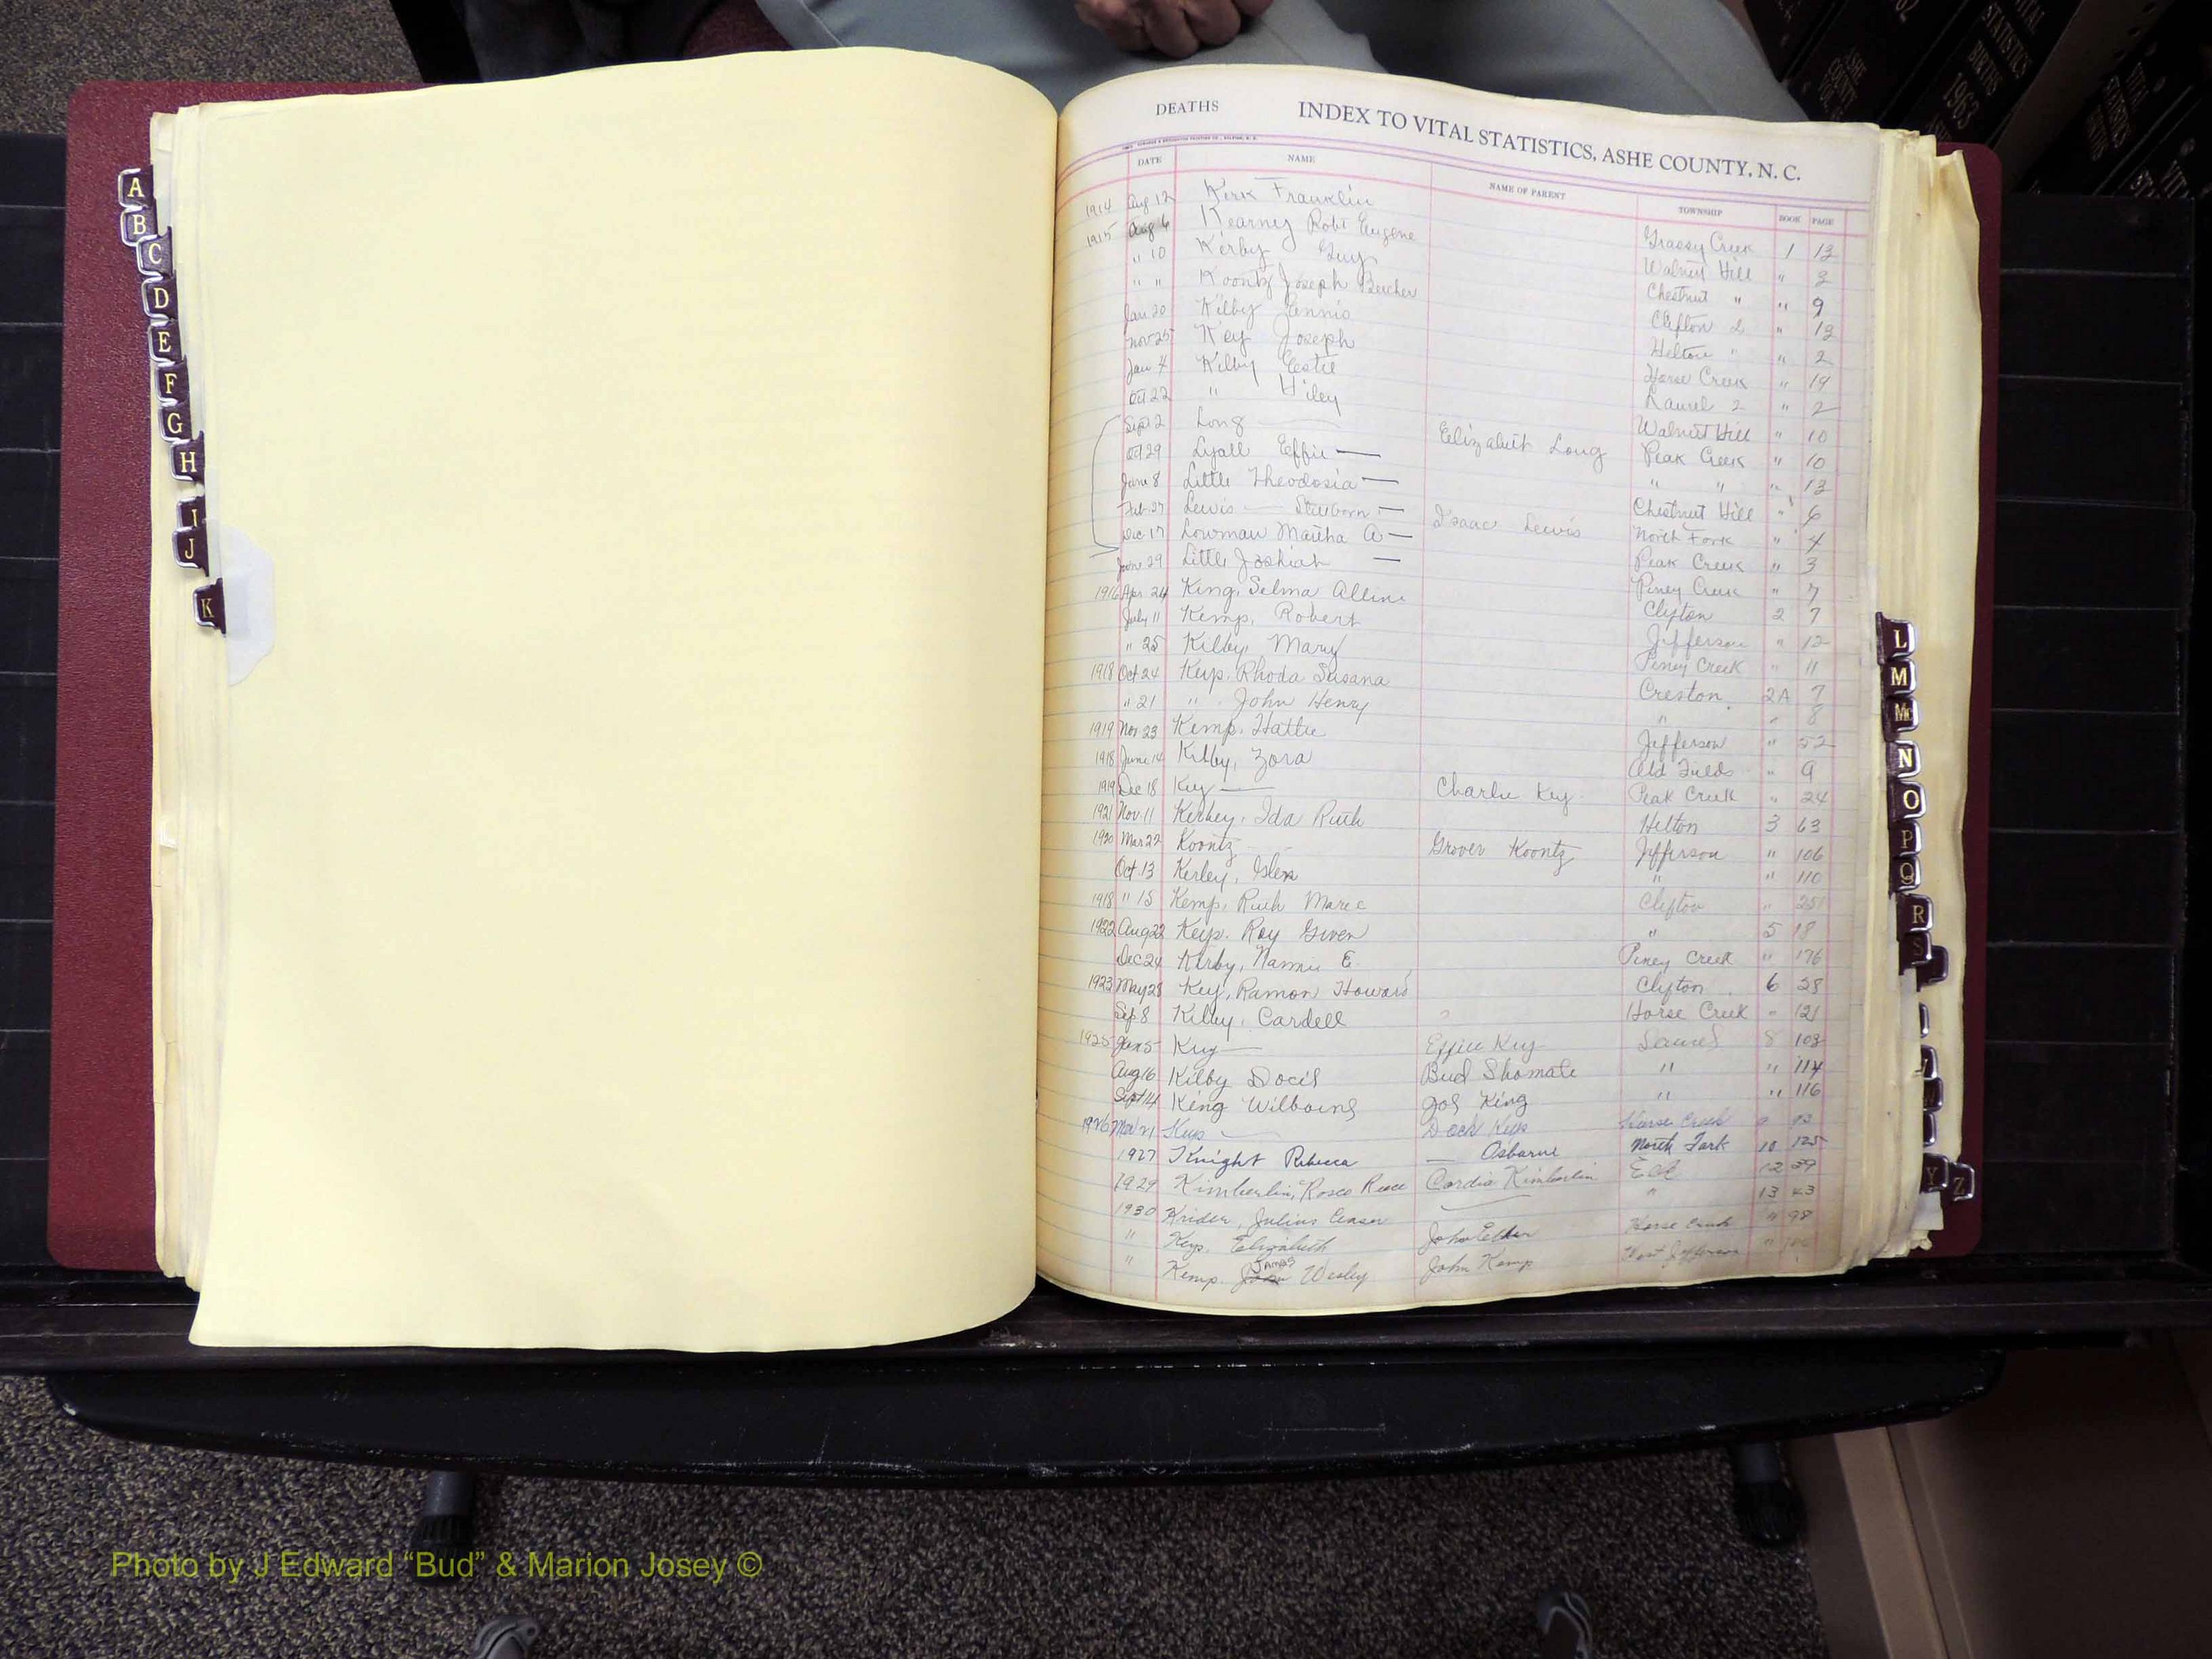 A
B
C
D
E
F
G
H
I
J
K
DEATHS INDEX TO VITAL STATISTICS, ASHE COUNTY, N. C.
DATE NAME NAME OF PARENT TOWNSHIP BOOK PAGE
1914 Aug 12 Kirk Franklin Grassy Creek 1 13
1915 Aug 6 Kearney Robt Eugene Walnut Hill " 3
" 10 Kerby Guy Chestnut " " 9
" " Koontz Joseph Clifton 2 " 13
Jan 20 Kilby Helton " " 2
Nov 25 Key Joseph Horse Creek " 14
Jan 4 Kilby Laurel 2 " 2
Oct 22 " Wiley Walnut Hill " 10
Sept 2 Long Elizabeth Long Peak Creek " 10
Oct 29 Lyall Effie " " " 13
June 8 Little Theodosia Chestnut Hill " 6
Feb 27 Lewis Isaac Lewis North Fork " 4
Dec 17 Lowman Martha A Peak Creek " 3
June 29 Little Joshiah Piney Creek " 7
1916 Apr 24 King, Selma Clifton 2 7
July 11 Kemp, Robert Jefferson " 12
" 25 Kilby, Mary Piney Creek " 11
1918 Oct 24 Keys, Rhoda Susana Creston 2A 7
" 21 " John Henry " " 8
1919 Nov 23 Kemp, Hattie Jefferson " 52
1918 June 14 Kilby, Zora Old Fields " 9
1919 Dec 18 Key Charlie Key Peak Creek " 24
1921 Nov. 11 Kerbey, Ida Ruth Helton 3 63
1920 Mar 22 Koontz Grover Koontz Jefferson " 106
Oct 13 Kerley, " " 110
1918 " 15 Kemp, Ruth Marie Clifton " 251
1922 Aug 22 Keys. Roy Given " 5 18
Dec 24 Kirby, Nannie E. Piney Creek " 176
1923 May 28 Key, Ramon Howard Clifton 6 28
Sep 8 Kilby, Cardell Horse Creek " 121
1925 Jan 5 Key Effie Key Laurel 8 103
Aug 16 Kilby Bud Shomate " " 114
Sept 14 King King " " 116
1926 Nov 21 Keys Dock Keys Horse Creek 9 92
1927 Knight Rebecca Osborne North Fork 10 125
1929 Kimberlin, Rosco Cardia Kimberlin Elk 12 39
1930 Krider, Julius Ceaser " 13 43
" Keys, Elizabeth John Horse Creek " 98
" Kemp. James Wesley John Kemp West Jefferson "
L
M
Mc
N
O
P
Q
R
S
Y
Z
ASHE
COUNTY
VITAL
STATISTICS
BIRTHS
1963
Photo by J Edward “Bud” & Marion Josey ©